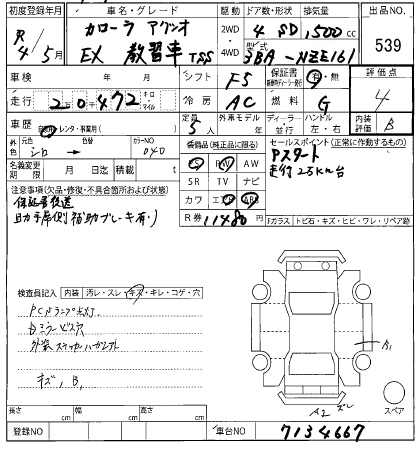 初度登録年月 車名・グレード 駆動 ドア数・形状 排気量 出品NO.
R 4/5月 カローラ アクシオ 2WD・4WD 4 SD 1,500cc 539
EX 教習車 TSS 型式 3BA-NZE161
車検 年 月 シフト F5 保証書 有・無 評価点
走行 20,472 キロ マイル 冷房 AC 燃料 G 4
車歴 自家用・レンタ・事業用( ) 定員 5 外車モデル 年 ディーラー・並行 ハンドル 左・右 内装評価 B
外色 元色 シロ → 色替 カラーNO 040 装備品(純正品に限る) セールスポイント(正常に作動するもの)
名義変更期限 月 日 リサイクル 積載 t PS PW AW Pスタート
SR TV ナビ 走行2万km台
注意事項(欠品・修復・不具合箇所および状態) カワ エアB ABS
保証書後送 R券 11480円
助手席側補助ブレーキ有り Fガラス トビ石・キズ・ヒビ・ワレ・リペア跡
検査員記入 内装 汚レ・スレ・キズ・キレ・コゲ・穴
Dミラービス穴
外装ステッカーハガシアト
キズ、B、
A1
A2 スレ
スペア
長さ cm 幅 cm 高さ cm
登録NO 車台NO 7134667